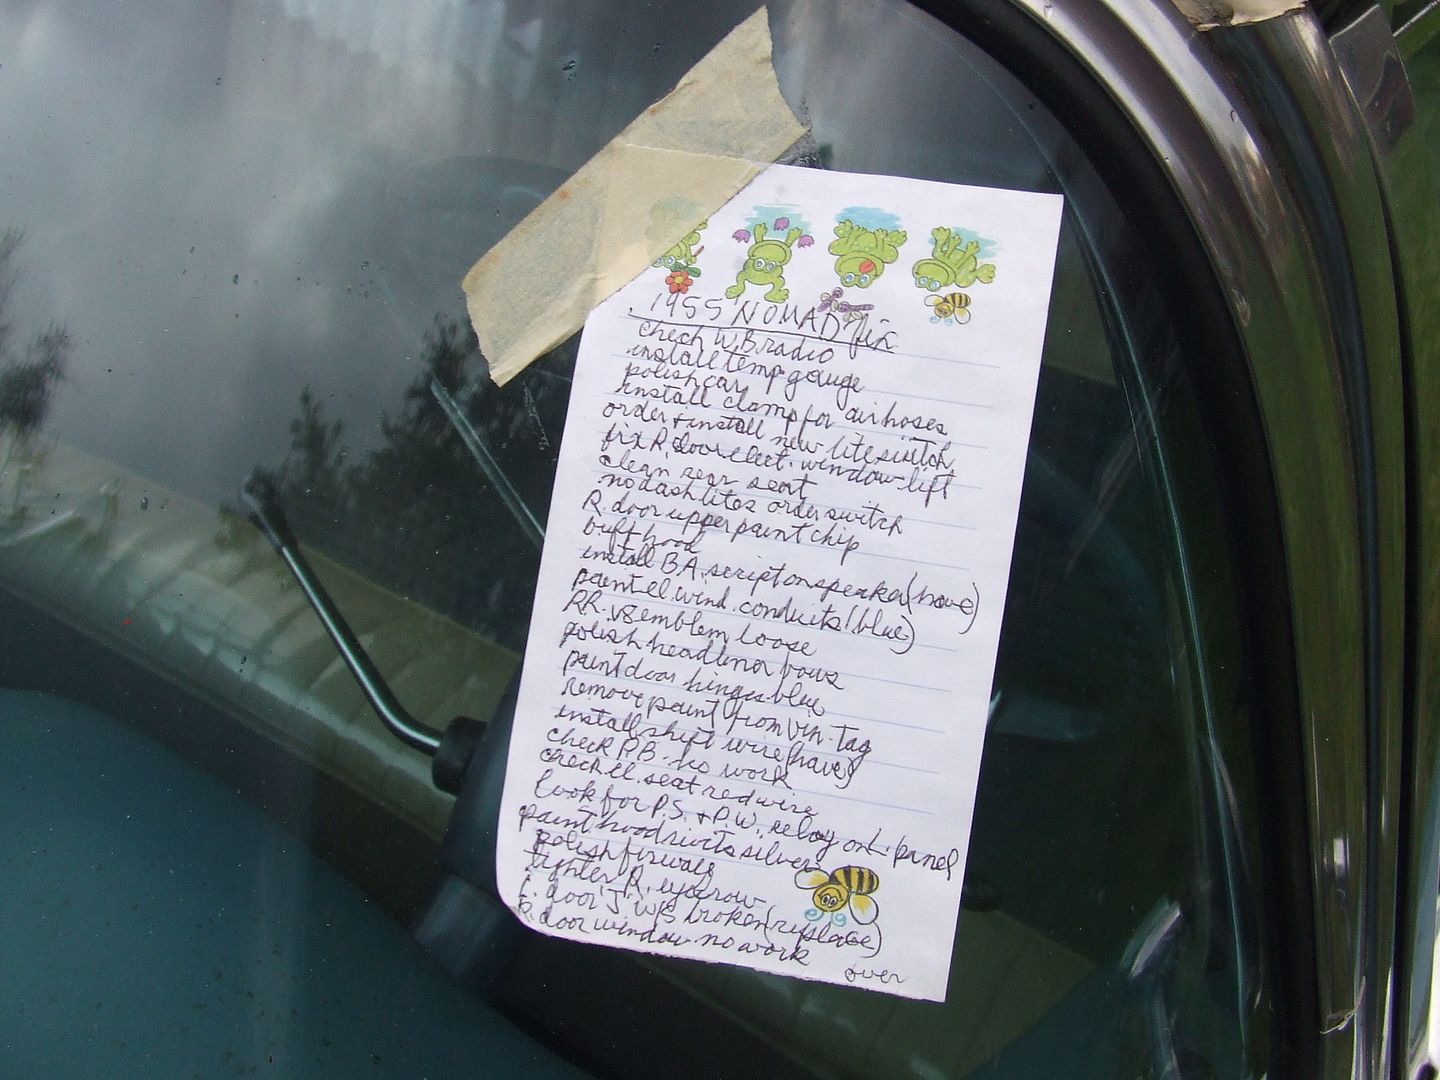 1955 NOMAD fix
check W.B. radio
install temp gauge
polish car
install clamp for air hoses
order + install new lite switch
fix R. door elect. window lift
clean rear seat
no dash lites order switch
R. door upper paint chip
buff hood
install BA. script on speaker (have)
paint el. wind. conduits (blue)
RR. V8 emblem loose
polish headliner bows
paint door hinges blue
remove paint from vin. tag
install shift wire (have)
check P.B. no work
check el. seat red wire
look for P.S. + P.W. relay on L. panel
paint hood rivets silver
polish firewall
tighter R. eyebrow
L. door "J" W/S broken (replace)
R. door window no work
over